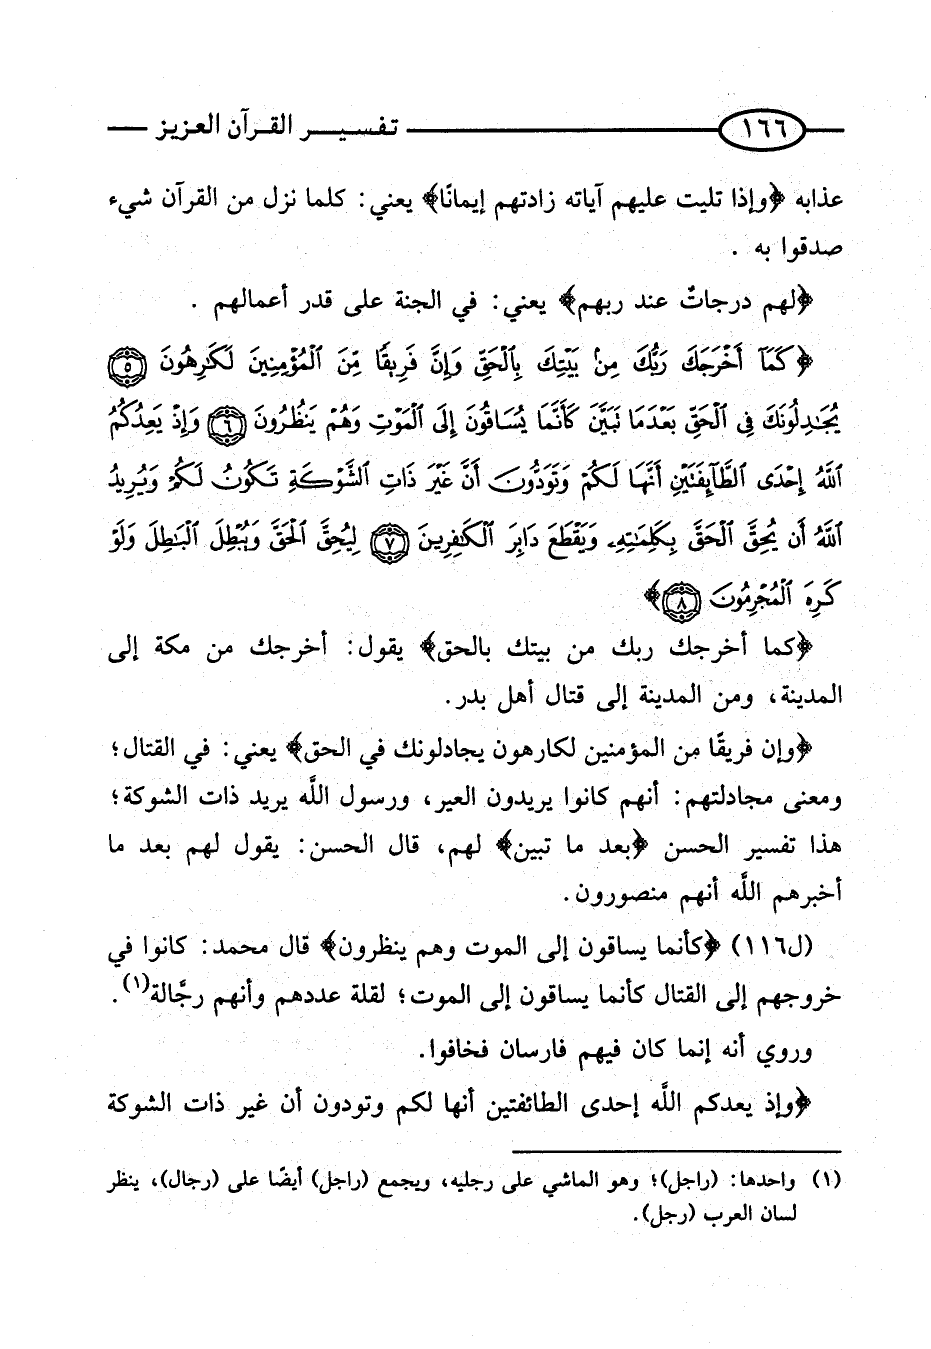 ١٦٦ تفسير القرآن العزيز
عذابه ﴿وإذا تليت عليهم آياته زادتهم إيمانًا﴾ يعني: كلما نزل من القرآن شيء
صدقوا به .
﴿لهم درجاتٌ عند ربهم﴾ يعني: في الجنة على قدر أعمالهم .
﴿كَمَآ أَخْرَجَكَ رَبُّكَ مِنۢ بَيْتِكَ بِٱلْحَقِّ وَإِنَّ فَرِيقًا مِّنَ ٱلْمُؤْمِنِينَ لَكَٰرِهُونَ ٥
يُجَٰدِلُونَكَ فِى ٱلْحَقِّ بَعْدَمَا تَبَيَّنَ كَأَنَّمَا يُسَاقُونَ إِلَى ٱلْمَوْتِ وَهُمْ يَنظُرُونَ ٦ وَإِذْ يَعِدُكُمُ
ٱللَّهُ إِحْدَى ٱلطَّآئِفَتَيْنِ أَنَّهَا لَكُمْ وَتَوَدُّونَ أَنَّ غَيْرَ ذَاتِ ٱلشَّوْكَةِ تَكُونُ لَكُمْ وَيُرِيدُ
ٱللَّهُ أَن يُحِقَّ ٱلْحَقَّ بِكَلِمَٰتِهِۦ وَيَقْطَعَ دَابِرَ ٱلْكَٰفِرِينَ ٧ لِيُحِقَّ ٱلْحَقَّ وَيُبْطِلَ ٱلْبَٰطِلَ وَلَوْ
كَرِهَ ٱلْمُجْرِمُونَ ٨﴾
﴿كما أخرجك ربك من بيتك بالحق﴾ يقول: أخرجك من مكة إلى
المدينة، ومن المدينة إلى قتال أهل بدر.
﴿وإن فريقًا من المؤمنين لكارهون يجادلونك في الحق﴾ يعني: في القتال؛
ومعنى مجادلتهم: أنهم كانوا يريدون العير، ورسول اللَّه يريد ذات الشوكة؛
هذا تفسير الحسن ﴿بعد ما تبين﴾ لهم، قال الحسن: يقول لهم بعد ما
أخبرهم اللَّه أنهم منصورون.
(ل١١٦) ﴿كأنما يساقون إلى الموت وهم ينظرون﴾ قال محمد: كانوا في
خروجهم إلى القتال كأنما يساقون إلى الموت؛ لقلة عددهم وأنهم رجَّالة(١).
وروي أنه إنما كان فيهم فارسان فخافوا.
﴿وإذ يعدكم اللَّه إحدى الطائفتين أنها لكم وتودون أن غير ذات الشوكة
(١) واحدها: (راجل)؛ وهو الماشي على رجليه، ويجمع (راجل) أيضًا على (رجال)، ينظر
لسان العرب (رجل).